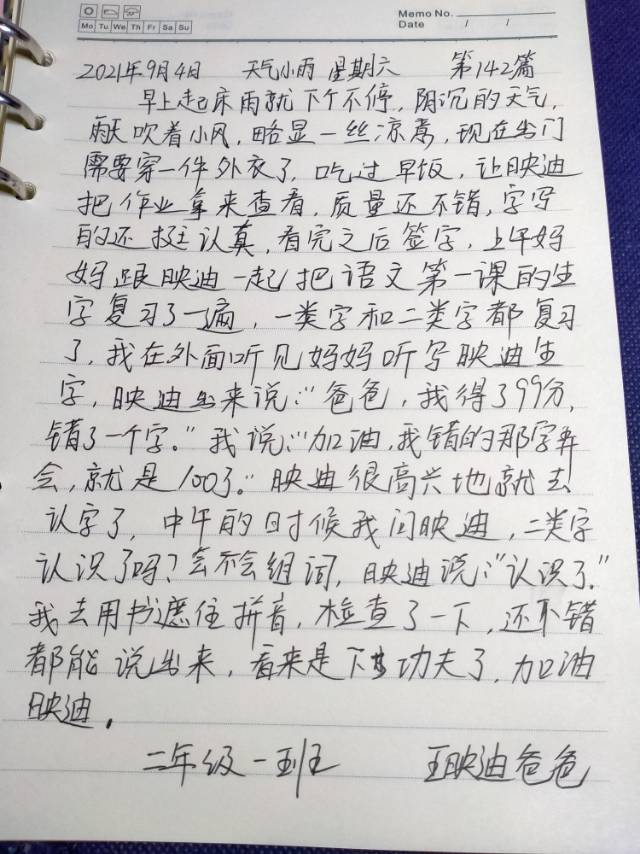 Memo No.
Mo Tu We Th Fr Sa Su
Date / /
2021年9月4日 天气小雨 星期六 第142篇
早上起床雨就下个不停,阴沉的天气,
雨天吹着小风,略显一丝凉意,现在出门
需要穿一件外衣了,吃过早饭,让映迪
把作业拿来查看,质量还不错,字写
的还挺认真,看完之后签字,上午妈
妈跟映迪一起把语文第一课的生
字复习了一遍,一类字和二类字都复习
了,我在外面听见妈妈听写映迪生
字,映迪出来说:“爸爸,我得了99分,
错了一个字。”我说:“加油,我错的那字再
会,就是100了。”映迪很高兴地就去
认字了,中午的时候我问映迪,二类字
认识了吗?会不会组词,映迪说:“认识了。”
我去用书遮住拼音,检查了一下,还不错
都能说出来,看来是下功夫了,加油
映迪。
二年级一班 王映迪爸爸